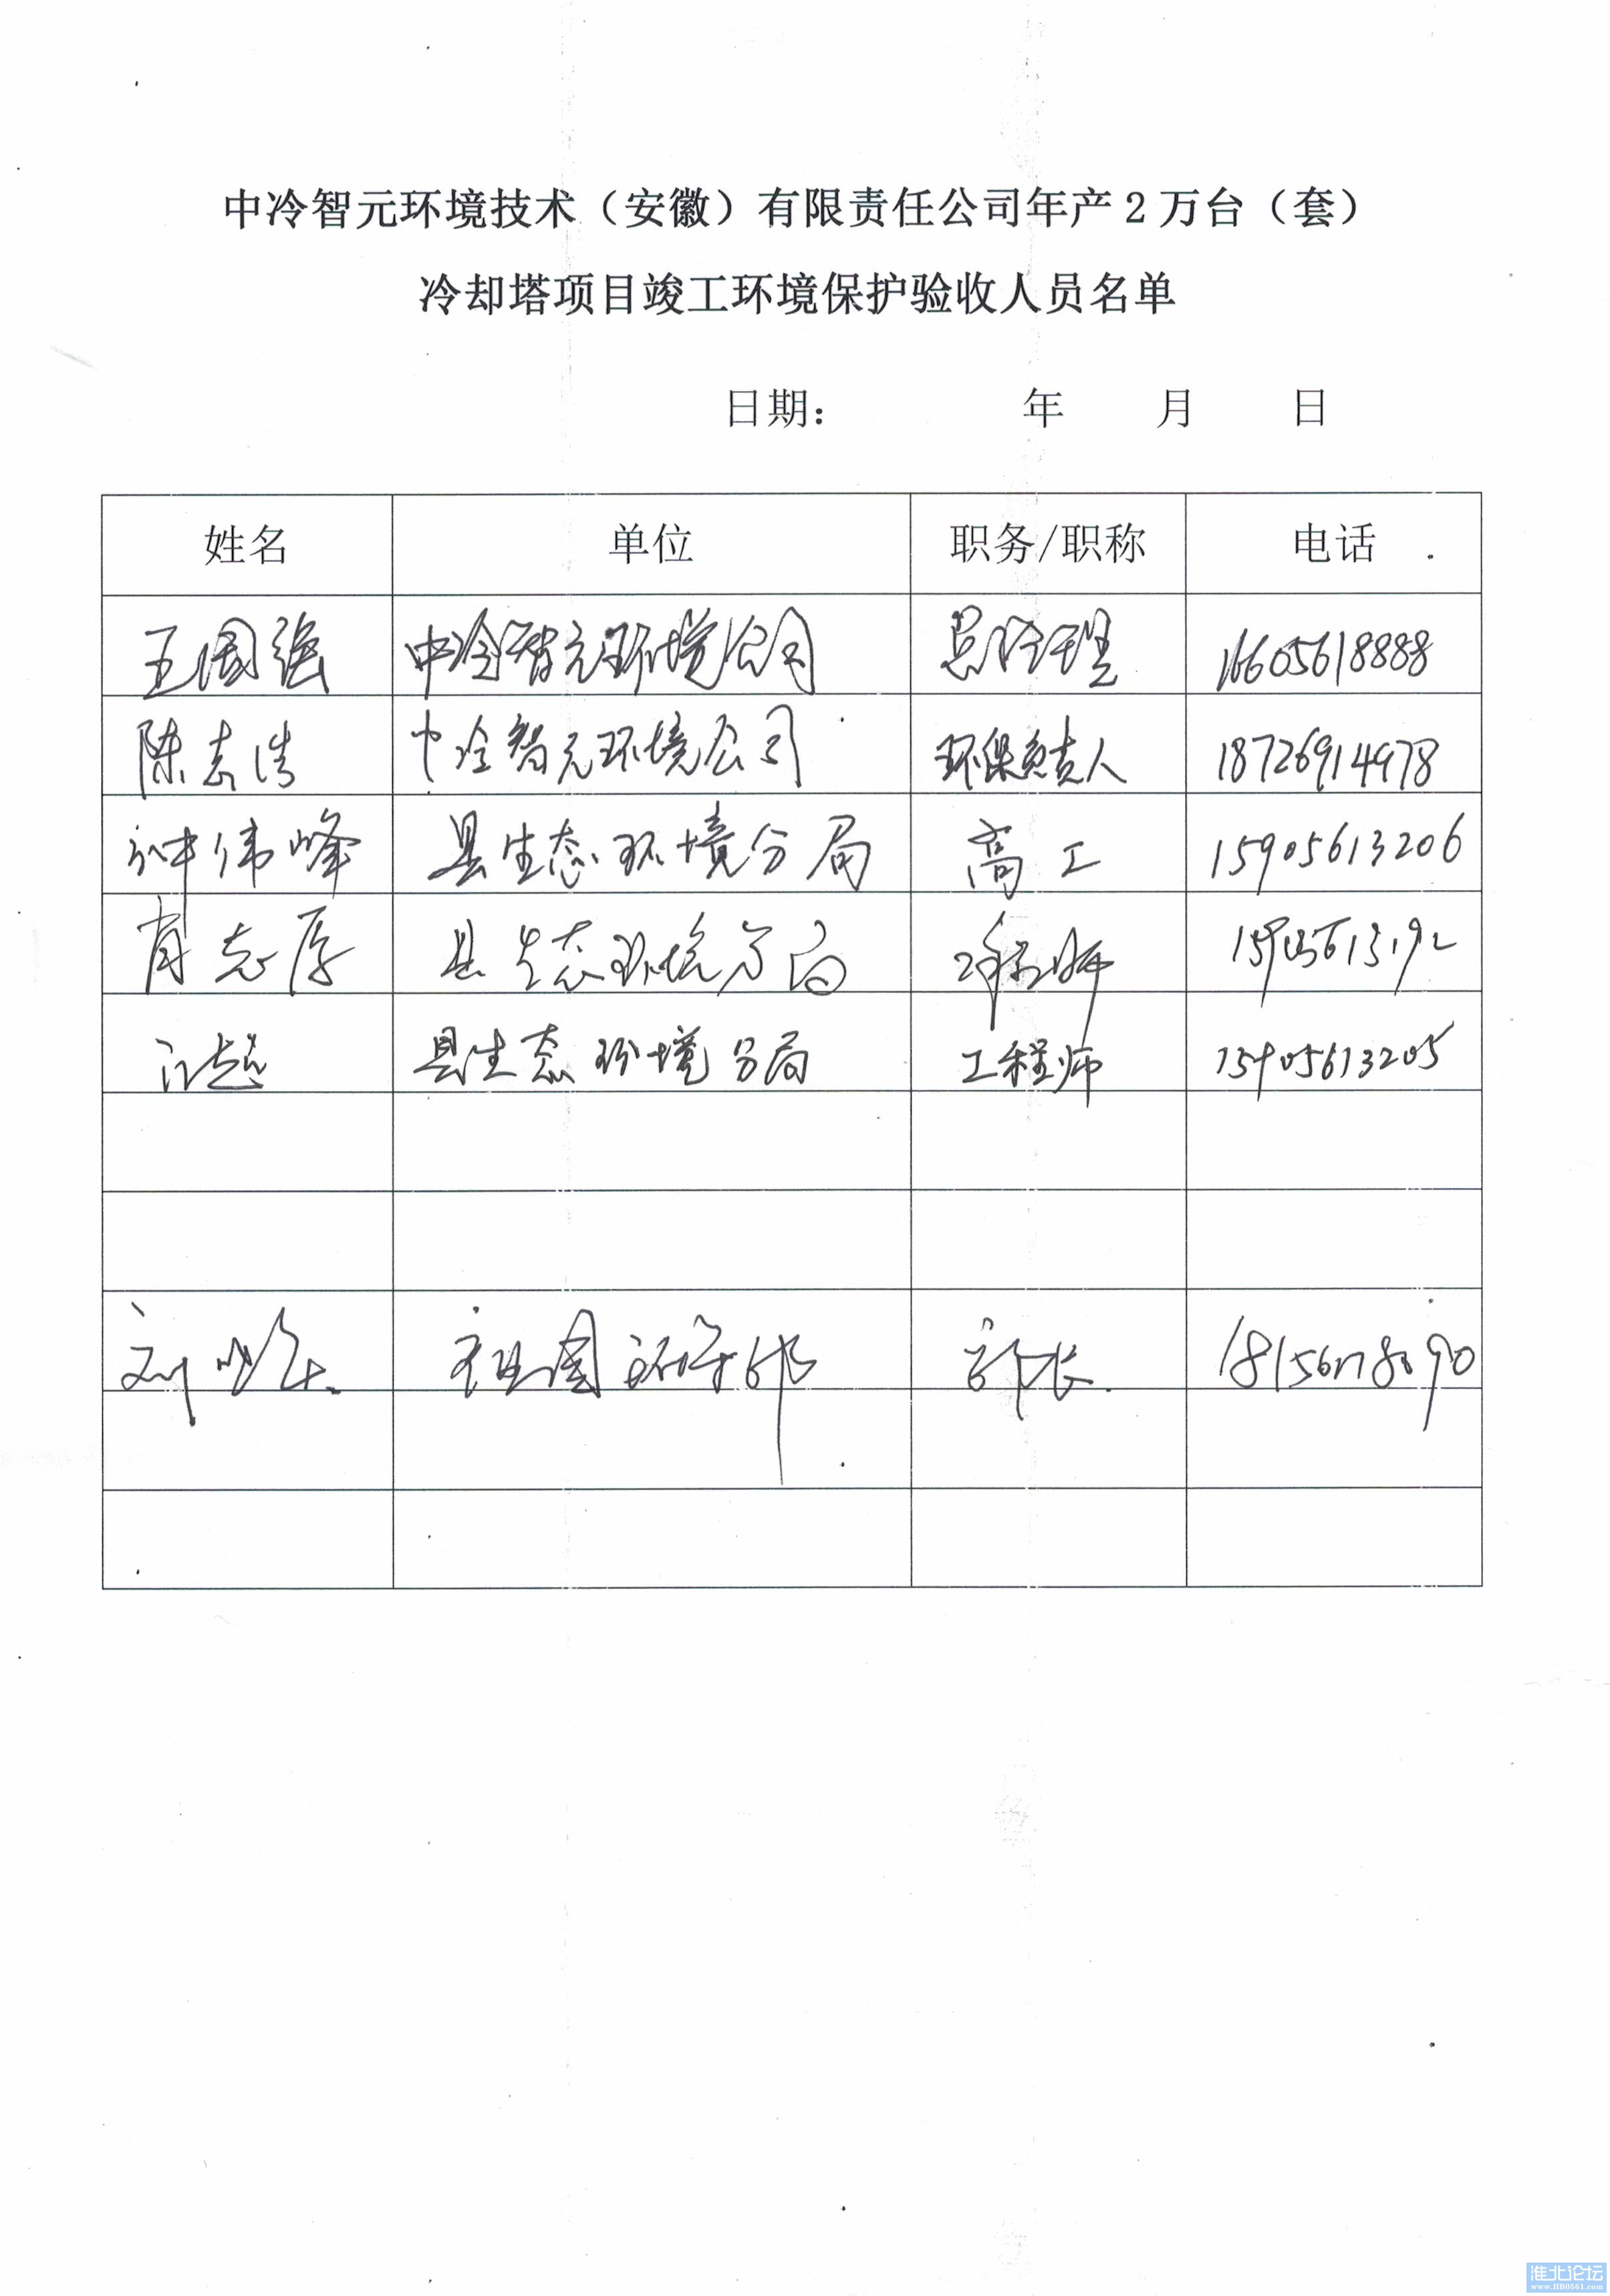 中冷智元环境技术（安徽）有限责任公司年产2万台（套）
冷却塔项目竣工环境保护验收人员名单
日期： 年 月 日
姓名 单位 职务/职称 电话
王国强 中冷智元环境公司 总经理 16605618888
陈志浩 中冷智元环境公司 环保负责人 18726914978
钟伟峰 县生态环境分局 高工 15905613206
肖志厚 县生态环境分局 工程师
县生态环境分局 工程师 15905613205
刘 部长
淮北论坛
www.HB0561.com